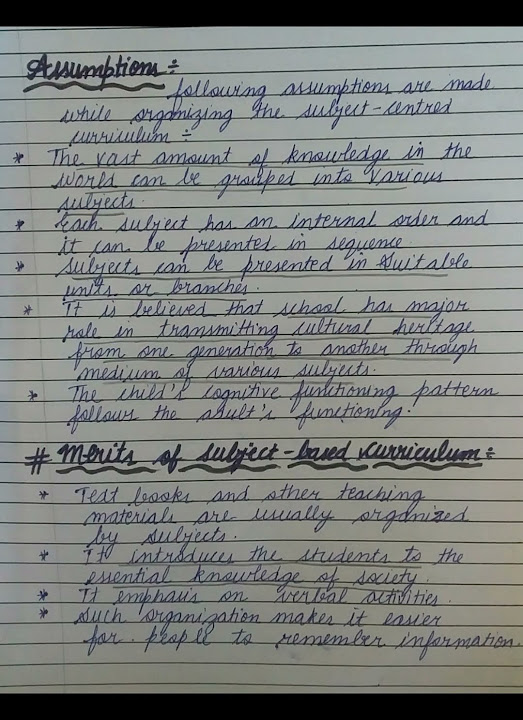 Assumptions ÷
following assumptions are made
while organizing the subject-centred
curriculum ÷
* The vast amount of knowledge in the
world can be grouped into various
subjects.
* Each subject has an internal order and
it can be presented in sequence.
* Subjects can be presented in suitable
units or branches.
* It is believed that school has major
role in transmitting cultural heritage
from one generation to another through
medium of various subjects.
* The child's cognitive functioning pattern
follows the adult's functioning.
# Merits of subject-based curriculum ÷
* Text books and other teaching
materials are usually organized
by subjects.
* It introduces the students to the
essential knowledge of society.
* It emphais on verbal activities.
* Such organization makes it easier
for people to remember information.